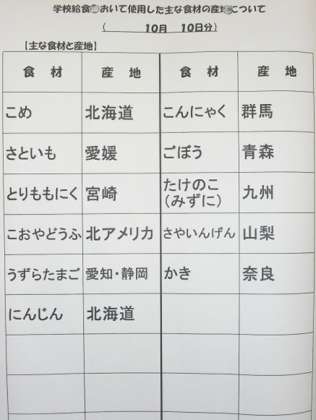 学校給食において使用した主な食材の産地について
( 10月 10日分)
【主な食材と産地】
食 材 産 地 食 材 産 地
こめ 北海道 こんにゃく 群馬
さといも 愛媛 ごぼう 青森
とりももにく 宮崎 たけのこ 九州
(みずに)
こおやどうふ 北アメリカ さやいんげん 山梨
うずらたまご 愛知・静岡 かき 奈良
にんじん 北海道